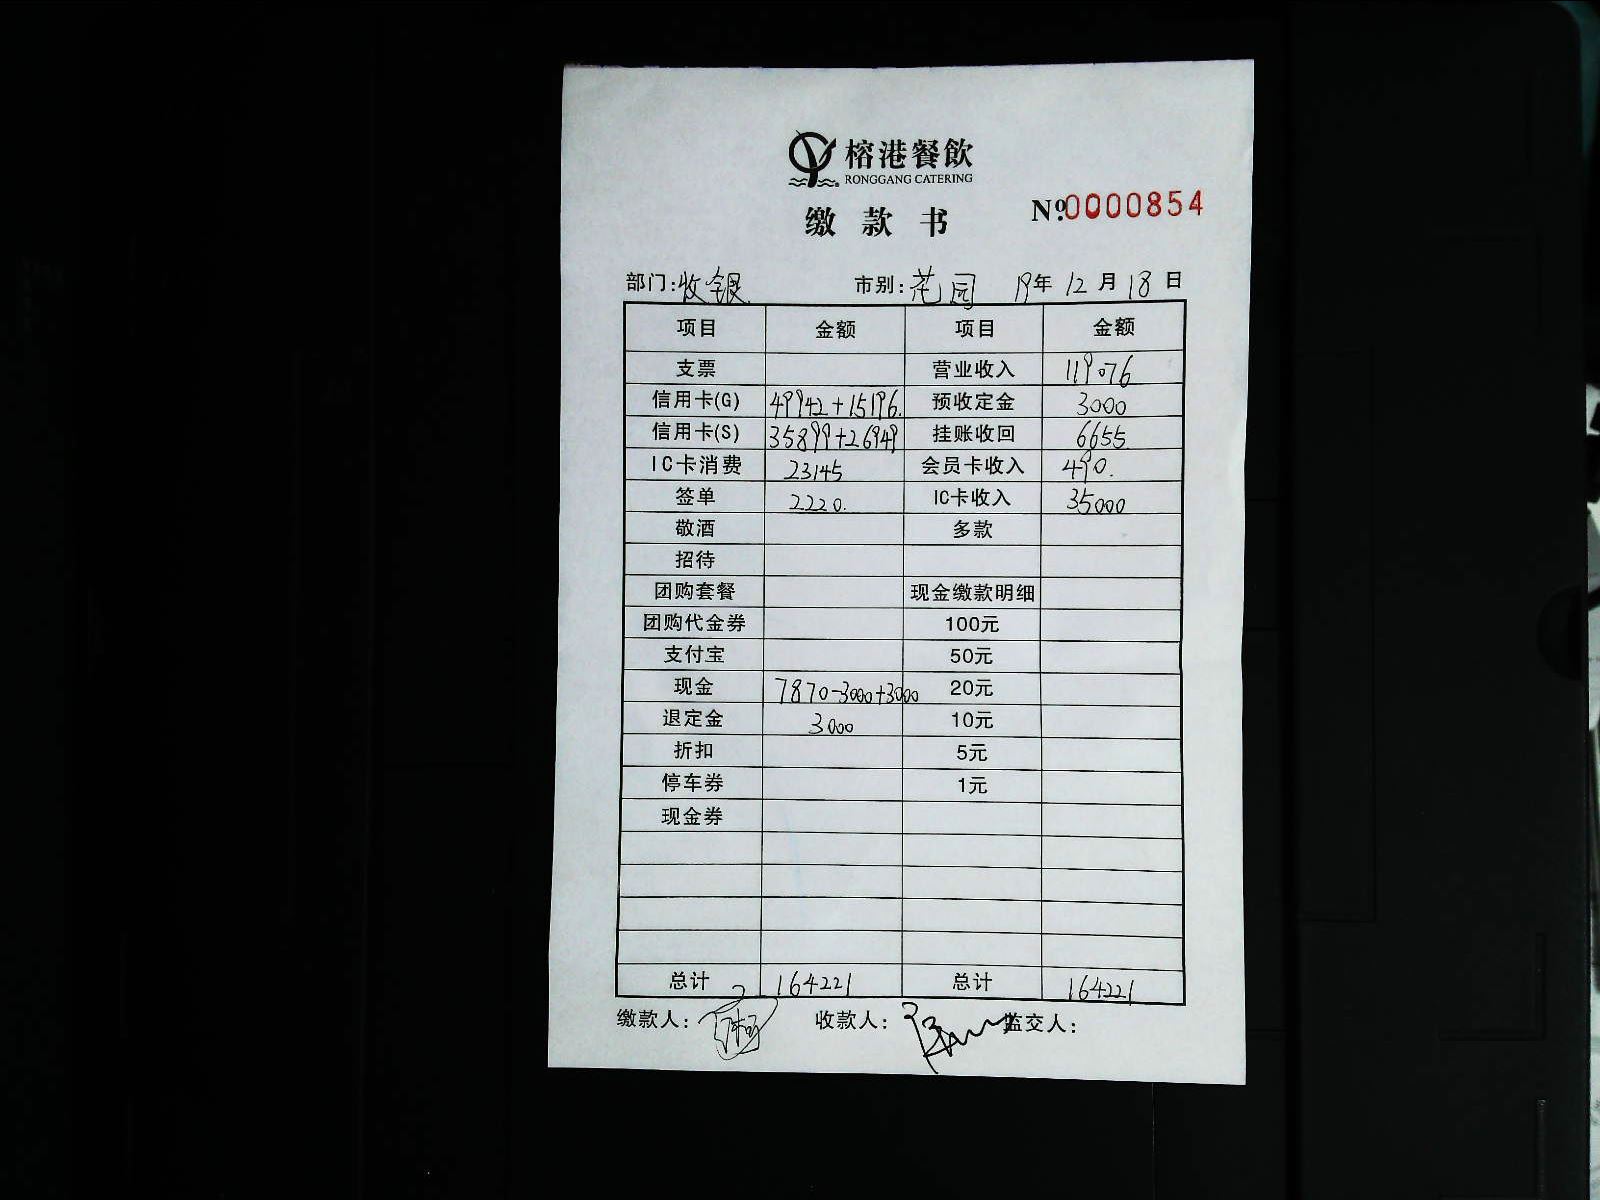 榕港餐飲
RONGGANG CATERING
缴款书 №0000854
部门:收银 市别:花园 19年12月18日
项目 金额 项目 金额
支票 营业收入 119076
信用卡(G) 49942+15196. 预收定金 3000
信用卡(S) 35899+26949 挂账收回 6655.
IC卡消费 23145 会员卡收入 490.
签单 2220. IC卡收入 35000
敬酒 多款
招待
团购套餐 现金缴款明细
团购代金券 100元
支付宝 50元
现金 7870-3000+3000 20元
退定金 3000 10元
折扣 5元
停车券 1元
现金券
总计 164221 总计 164221
缴款人: 收款人: 监交人: